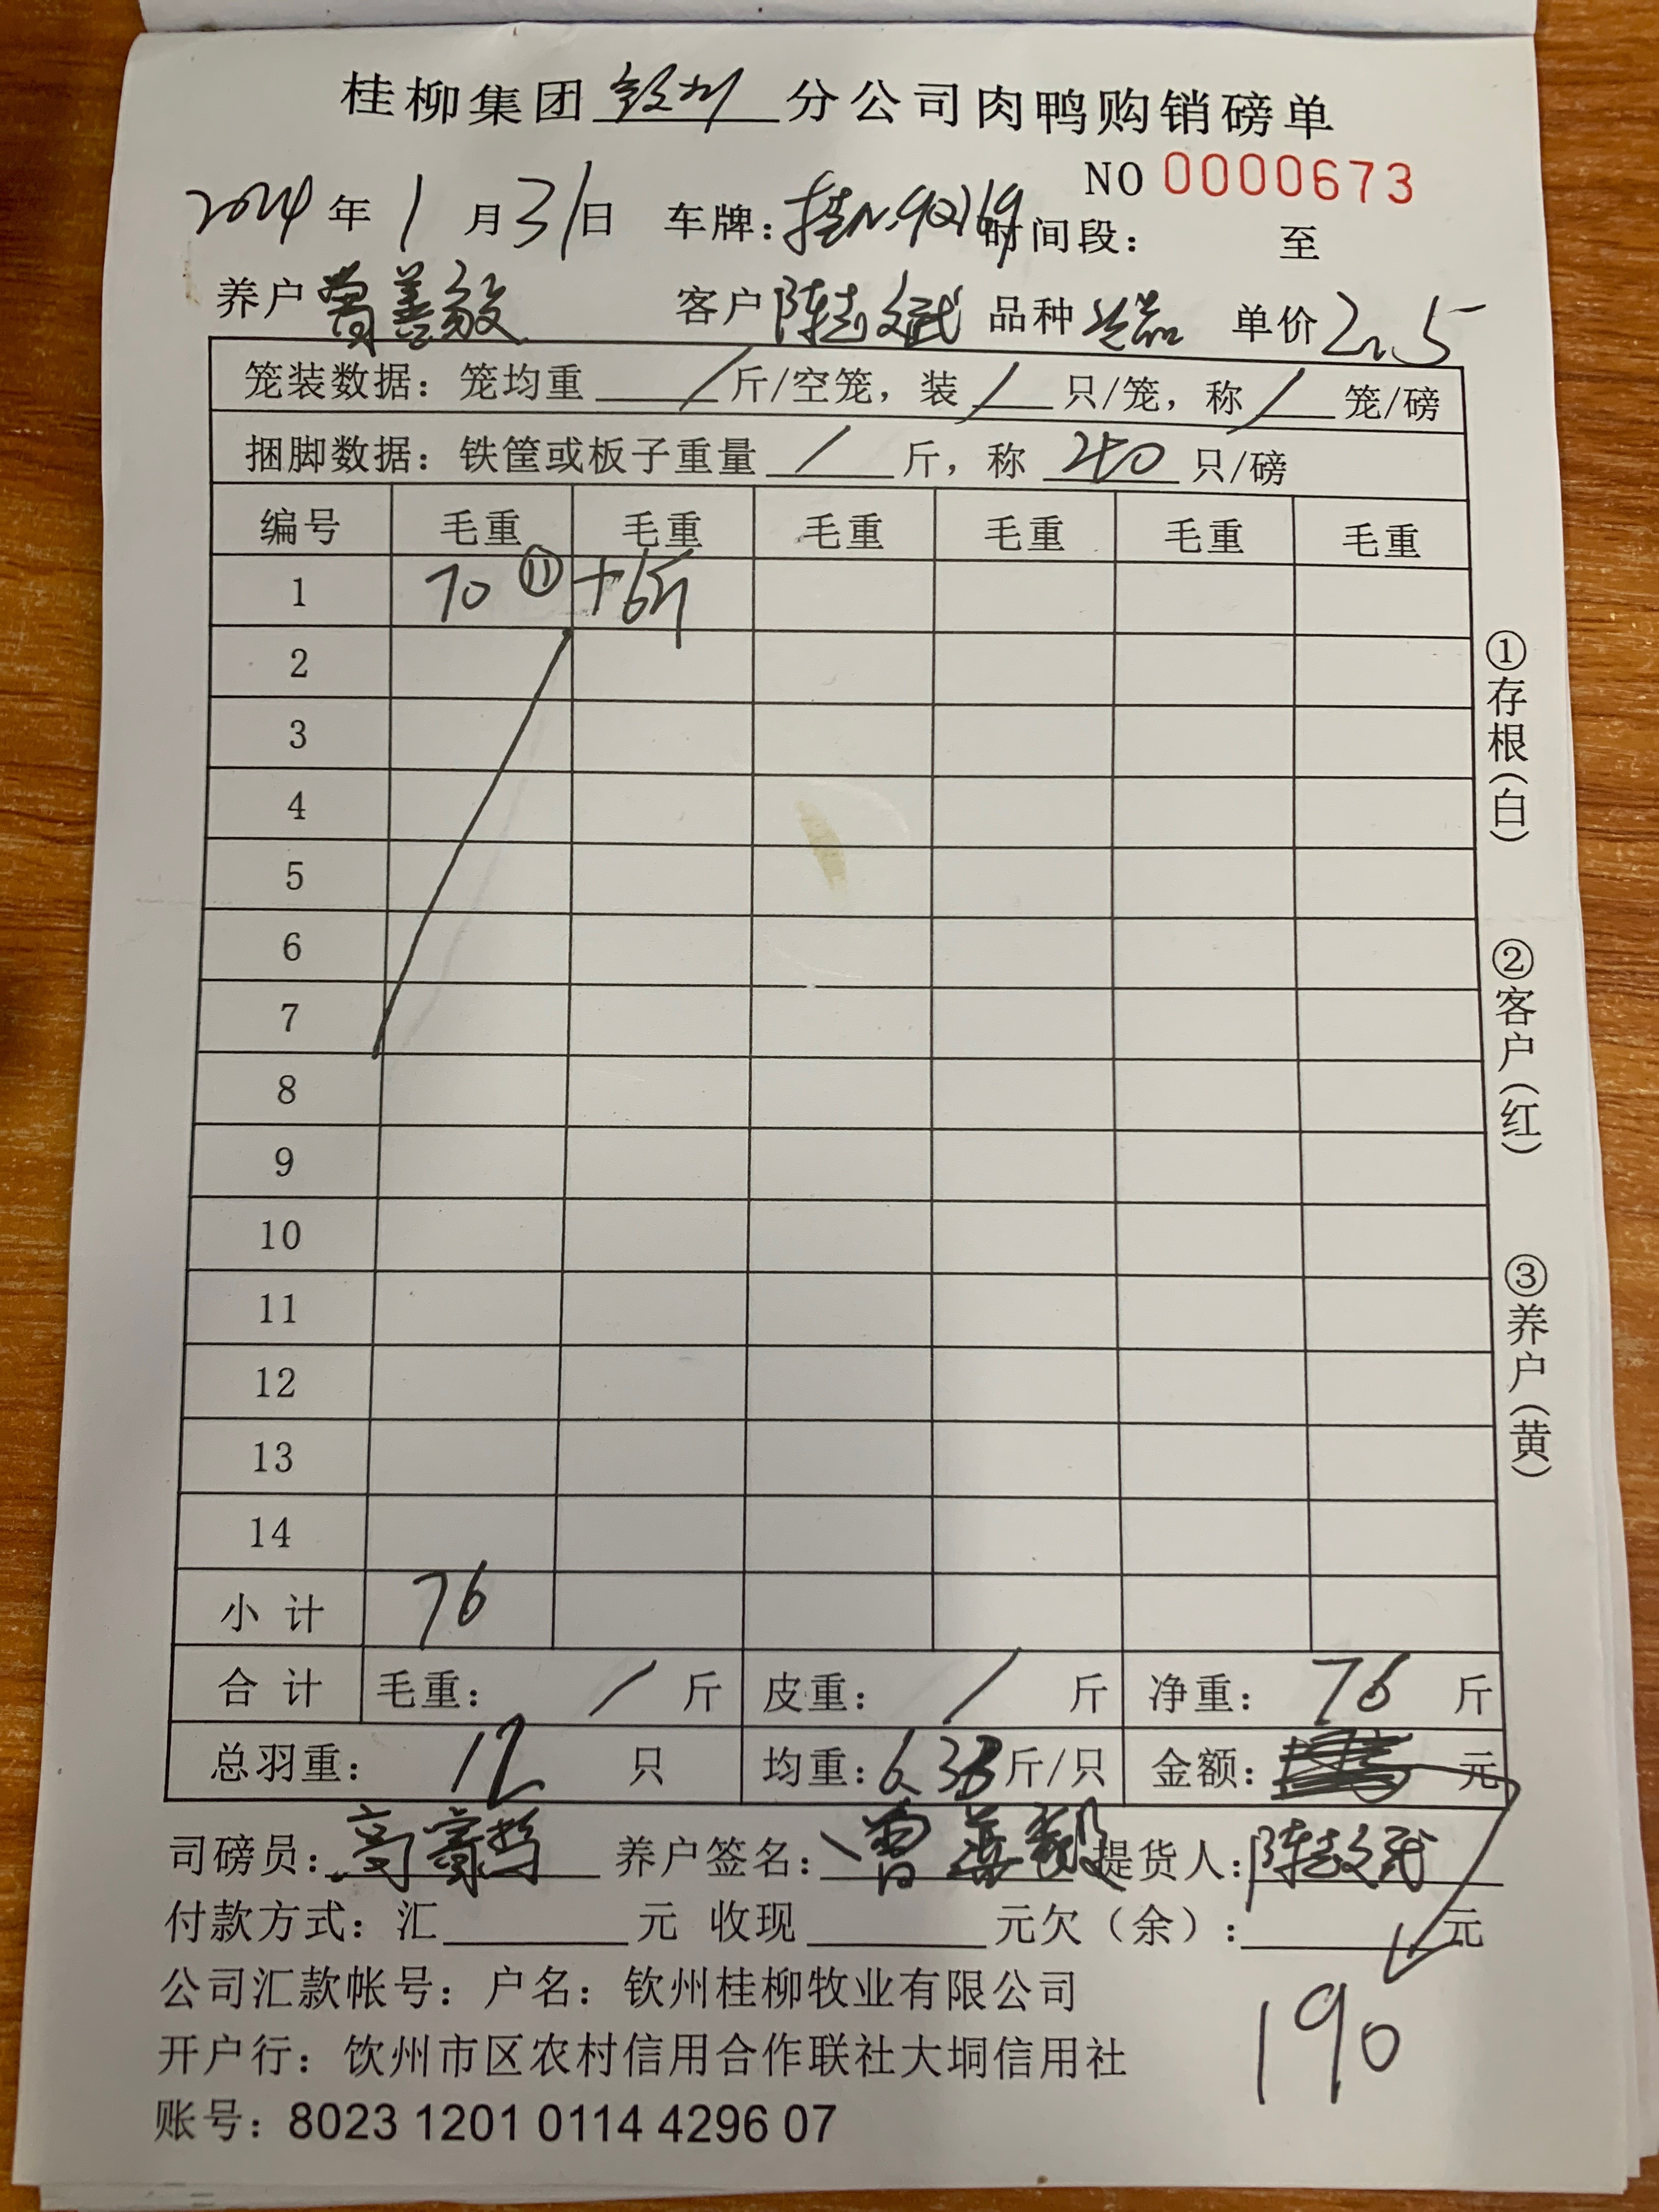 桂柳集团 钦州 分公司肉鸭购销磅单
NO 0000673
2024 年 1 月 31 日 车牌：桂N.90269 时间段： 至
养户 曾善毅 客户 陈志斌 品种 单价 2.5
笼装数据：笼均重 / 斤/空笼，装 / 只/笼，称 / 笼/磅
捆脚数据：铁筐或板子重量 / 斤，称 只/磅
编号 毛重 毛重 毛重 毛重 毛重 毛重
1 70 ⑪ +6斤
2
3
4
5
6
7
8
9
10
11
12
13
14
小计 76
合计 毛重： / 斤 皮重： / 斤 净重： 76 斤
总羽重： 12 只 均重：6.33 斤/只 金额： 元
司磅员： 养户签名：曾善毅 提货人：陈志斌
付款方式：汇 元 收现 元欠（余）： 元
190
公司汇款帐号：户名：钦州桂柳牧业有限公司
开户行：钦州市区农村信用合作联社大垌信用社
账号：8023 1201 0114 4296 07
①存根（白）
②客户（红）
③养户（黄）